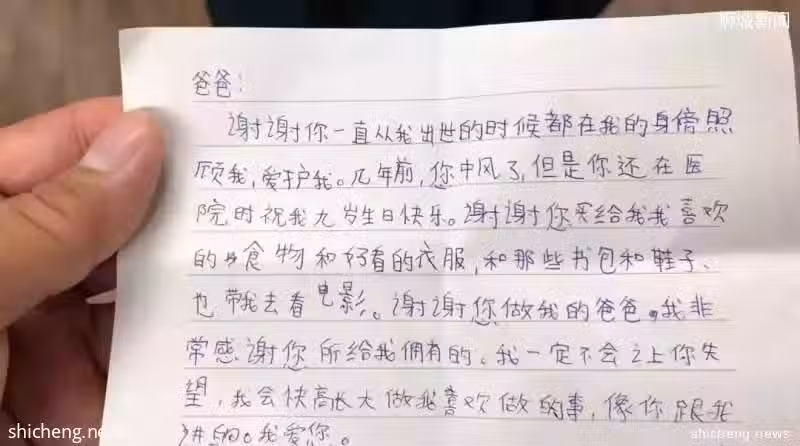 狮城新闻
爸爸:
谢谢你一直从我出世的时候都在我的身傍照
顾我,爱护我。几年前,您中风了,但是你还在医
院时祝我九岁生日快乐。谢谢您买给我我喜欢
的食物和好看的衣服,和那些书包和鞋子、
也带我去看电影。谢谢您做我的爸爸。我非
常感谢您所给我拥有的。我一定不会让你失
望,我会快高长大做我喜欢做的事,像你跟我
讲的。我爱您。
shicheng.news
shicheng.news